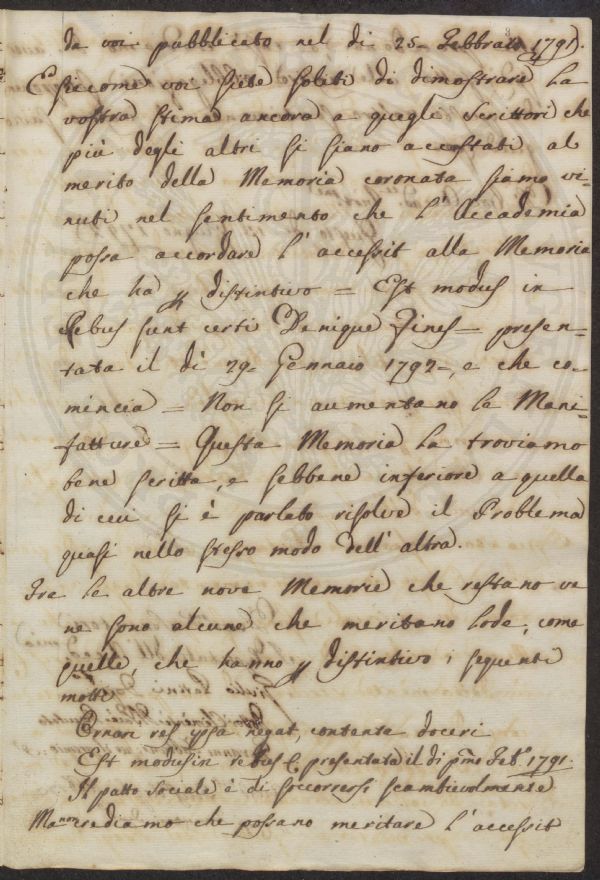 da voi pubblicato nel dì 25. Febbraio 1791).
E siccome voi siete soliti di dimostrare la
vostra stima ancora a quegli Scrittori che
più degli altri si siano accostati al
merito della Memoria coronata siamo ve-
nuti nel sentimento che l'Accademia
possa accordare l'accessit alla Memoria
che ha p distintivo = Est modus in
Rebus sunt certi Denique Fines = presen-
tata il dì 29. Gennaio 1792=, e che co-
mincia = Non si aumentano le Mani-
fatture = Questa Memoria la troviamo
bene scritta, e sebbene inferiore a quella
di cui si è parlato risolve il Problema
quasi nello stesso modo dell'altra.
Tra le altre nove Memorie che restano ve
ne sono alcune che meritano lode, come
quelle, che hanno p distintivo i seguenti
motti
Ornari res ipsa negat, contenta doceri
Est modus in rebus &. presentata il dì pmo Feb.o 1791.
Il patto sociale è di soccorrersi scambievolmente
Ma non crediamo che possano meritare l'accessit